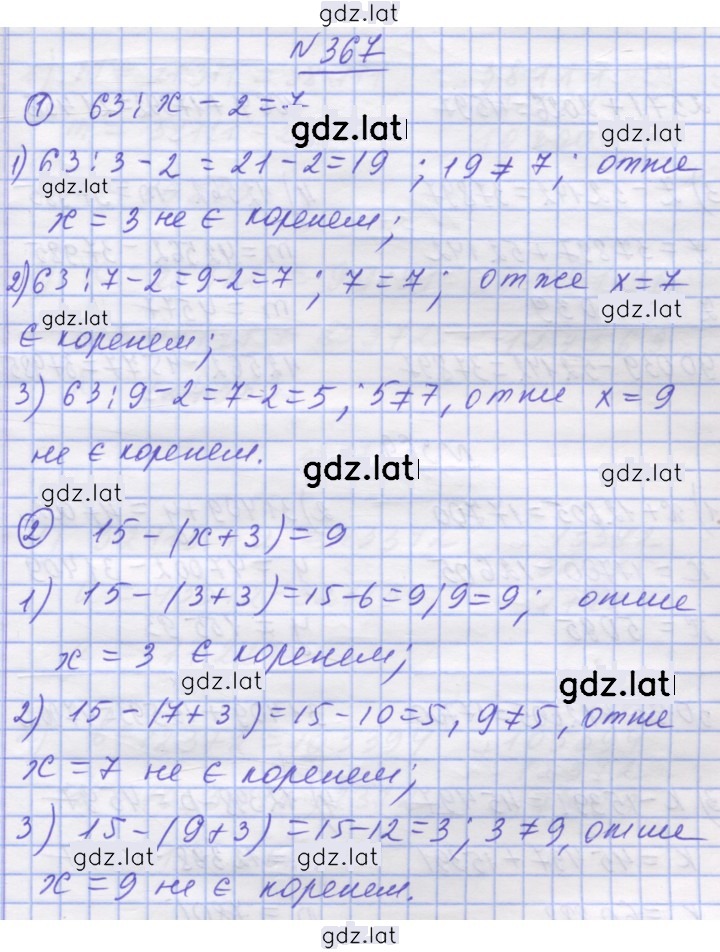 gdz.lat
№ 367
① 63 : x - 2 = 7
gdz.lat
1) 63 : 3 - 2 = 21 - 2 = 19 ; 19 ≠ 7; отже
gdz.lat gdz.lat
x = 3 не є коренем;
2) 63 : 7 - 2 = 9 - 2 = 7 ; 7 = 7; отже x = 7
gdz.lat gdz.lat
є коренем;
3) 63 : 9 - 2 = 7 - 2 = 5 ; 5 ≠ 7, отже x = 9
не є коренем.
gdz.lat gdz.lat
gdz.lat
② 15 - (x + 3) = 9
1) 15 - (3 + 3) = 15 - 6 = 9, 9 = 9; отже
x = 3 є коренем;
gdz.lat gdz.lat
2) 15 - (7 + 3) = 15 - 10 = 5, 9 ≠ 5, отже
x = 7 не є коренем;
3) 15 - (9 + 3) = 15 - 12 = 3; 3 ≠ 9, отже
gdz.lat gdz.lat gdz.lat
x = 9 не є коренем.
gdz.lat